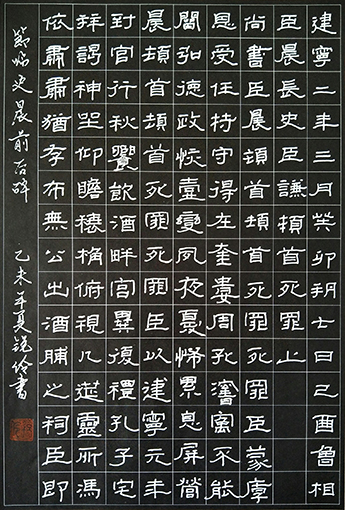 建寧二年三月癸卯朔七日己酉魯相
臣晨長史臣謙頓首死罪上
尚書臣晨頓首頓首死罪死罪臣蒙厚
恩受任符守得在奎婁周孔舊寓不能
闡弘德政恢壹變夙夜憂怖累息屏營
晨頓首頓首死罪死罪臣以建寧元年
到官行秋饗飲酒畔宮畢復禮孔子宅
拜謁神坐仰瞻榱桷俯視几筵靈所馮
依肅肅猶存布無公出酒脯之祠臣即
節临史晨前后碑 乙未年夏锐伶書